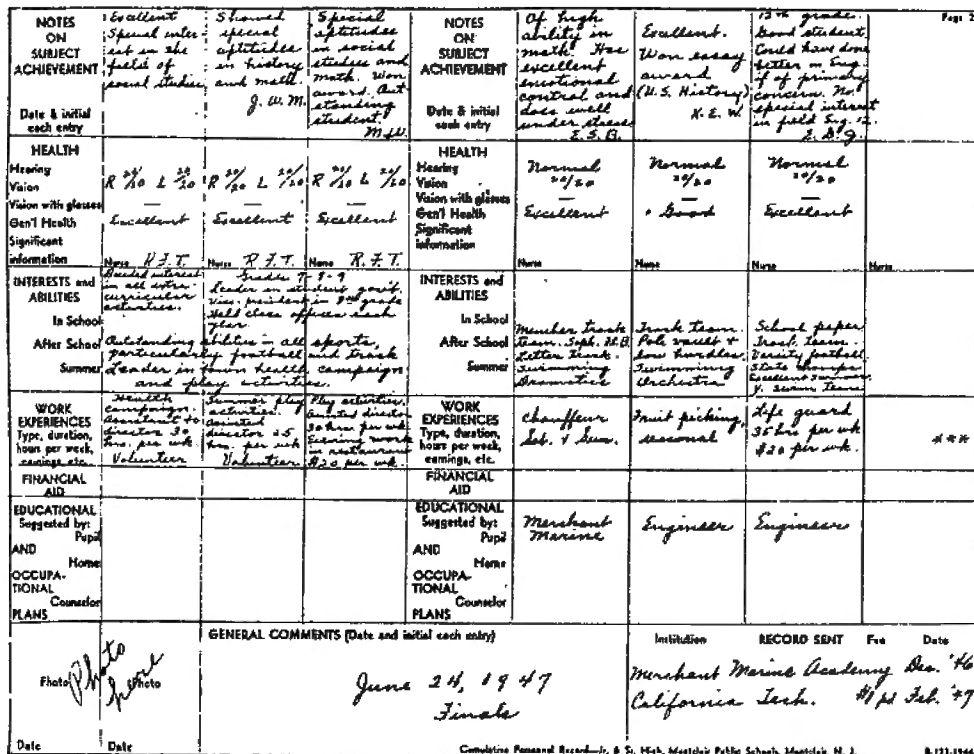 Page 2
NOTES
ON
SUBJECT
ACHIEVEMENT
Date & initial
each entry
Excellent
Special inter-
est in the
field of
social studies
Showed
special
aptitudes
in history
and math.
J. W. M.
Special
aptitudes
in social
studies and
math. Won
award. Out
standing
student.
NOTES
ON
SUBJECT
ACHIEVEMENT
Date & initial
each entry
Of high
ability in
math. Has
excellent
emotional
control and
does well
under stress
E. S. B.
Excellent.
Won essay
award
(U.S. History)
K. E. W.
12th grade.
Good student
Could have done
better in Eng
if of primary
concern. No
special interest
in field Eng. 12.
HEALTH
Hearing
Vision
Vision with glasses
Gen'l Health
Significant
information
R 20/20 L 20/20
—
Excellent
Nurse R. F. T.
R 20/20 L 20/20
—
Excellent
Nurse R. F. T.
R 20/20 L 20/20
—
Excellent
Nurse R. F. T.
HEALTH
Hearing
Vision
Vision with glasses
Gen'l Health
Significant
information
Normal
20/20
—
Excellent
Nurse
Normal
20/20
—
Good
Nurse
Normal
20/20
—
Excellent
Nurse
Nurse
INTERESTS and
ABILITIES
In School
After School
Summer
Decided interest
in all extra-
curricular
activities.
Grades 7-8-9
Leader in student gov't.
Vice-president in 8th grade
Held class offices each
year.
Outstanding abilities in all sports,
particularly football and track
Leader in town health campaign
and play activities.
INTERESTS and
ABILITIES
In School
After School
Summer
Member track
Team.
Letter Track.
Swimming
Dramatics
Track team.
Pole vault +
low hurdles
Swimming
Orchestra
School paper
Track team.
Varsity football
State champs
Excellent swimmer
Y. Swim Team
WORK
EXPERIENCES
Type, duration,
hours per week,
earnings, etc.
Health
campaign.
Assistant to
director 20
hrs. per wk
Volunteer
Summer play
activities.
Assisted
director 25
hrs. per wk
Volunteer
Play activities.
Assisted director
30 hrs per wk
Evening work
in restaurant
$20 per wk.
WORK
EXPERIENCES
Type, duration,
hours per week,
earnings, etc.
Chauffeur
Sat. & Sun.
Fruit picking,
seasonal
Life guard
35 hrs per wk
$20 per wk.
***
FINANCIAL
AID
FINANCIAL
AID
EDUCATIONAL
Suggested by:
Pupil
AND
Home
OCCUPA-
TIONAL
Counselor
PLANS
EDUCATIONAL
Suggested by:
Pupil
AND
Home
OCCUPA-
TIONAL
Counselor
PLANS
Merchant
Marine
Engineer
Engineer
Photo
Photo
Photo
here
Date
Date
GENERAL COMMENTS (Date and initial each entry)
June 24, 1947
Finals
Institution RECORD SENT Fee Date
Merchant Marine Academy Dec. '46
California Tech. $1 pd Feb. '47
Cumulative Personnel Record—Jr. & Sr. High, Montclair Public Schools, Montclair, N. J.